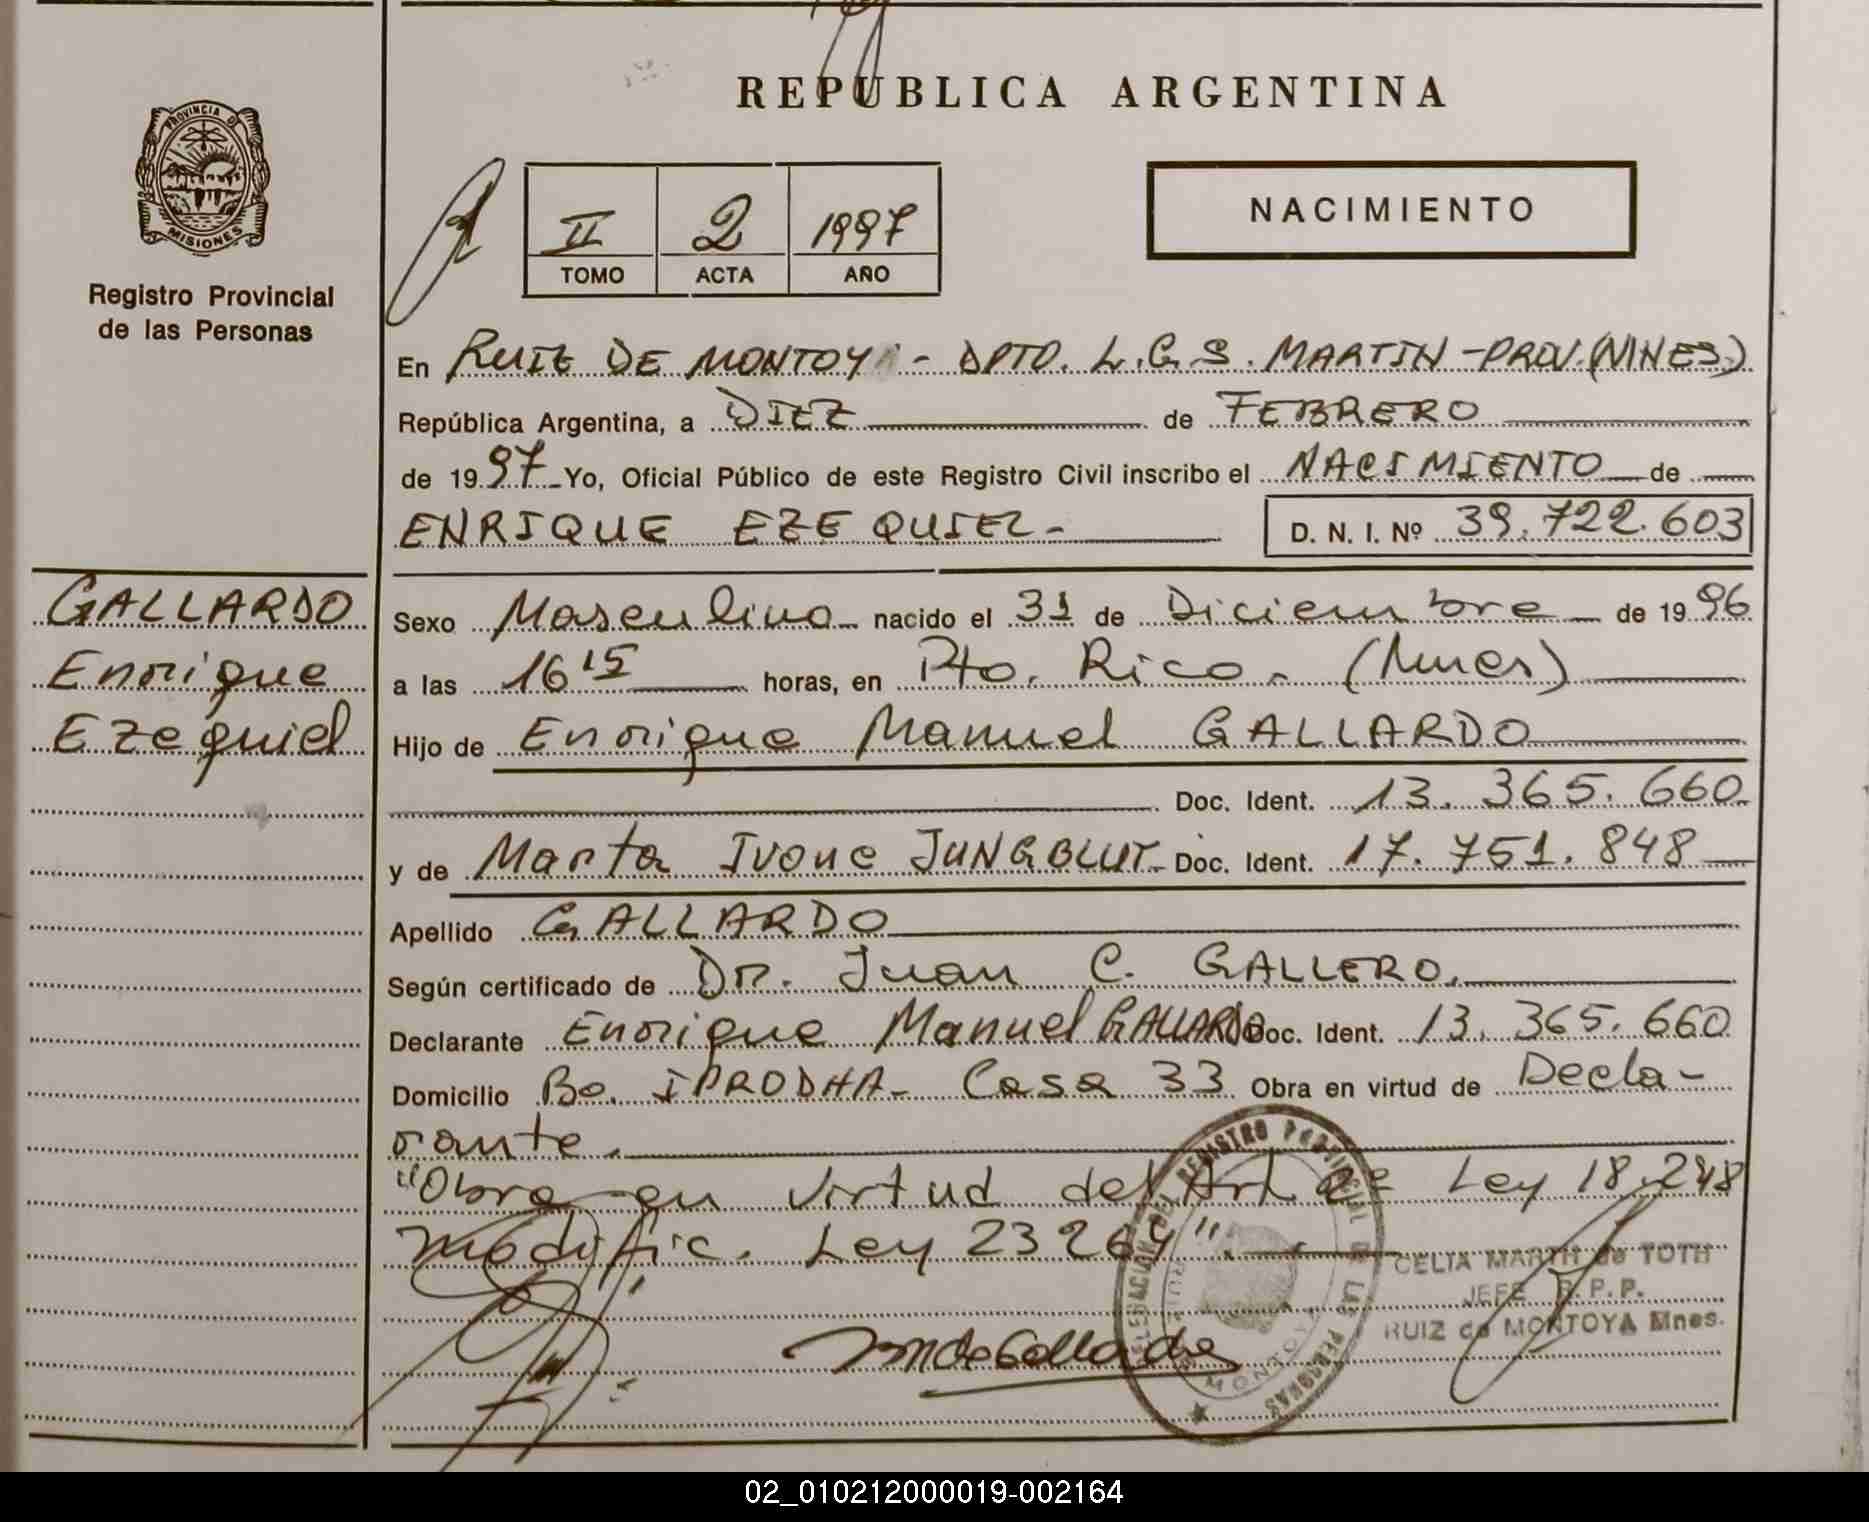 REPUBLICA ARGENTINA
PROVINCIA D
MISIONES
Registro Provincial
de las Personas
II 2 1997
TOMO ACTA AÑO
NACIMIENTO
En RUIZ DE MONTOYA - DPTO. L.G.S. MARTIN - PROV. (MNES.)
República Argentina, a DIEZ de FEBRERO
de 1997 Yo, Oficial Público de este Registro Civil inscribo el NACIMIENTO de
ENRIQUE EZEQUIEL - D. N. I. Nº 39.722.603
GALLARDO
Enrique
Ezequiel
Sexo Masculino nacido el 31 de Diciembre de 1996
a las 16 15 horas, en Pto. Rico. (Mnes)
Hijo de Enrique Manuel GALLARDO
Doc. Ident. 13.365.660
y de Marta Ivone JUNGBLUT - Doc. Ident. 17.751.848
Apellido GALLARDO
Según certificado de Dr. Juan C. GALLERO.
Declarante Enrique Manuel GALLARDO Doc. Ident. 13.365.660
Domicilio Bo. IPRODHA - Casa 33 Obra en virtud de Decla-
rante.
"Obra en virtud del Art. 2º Ley 18.248
modific. Ley 23264".
CELIA MARTH de TOTH
JEFE R.P.P.
RUIZ de MONTOYA Mnes.
DELEGACION DEL REGISTRO PROVINCIAL DE LAS PERSONAS
RUIZ DE MONTOYA
02_010212000019-002164